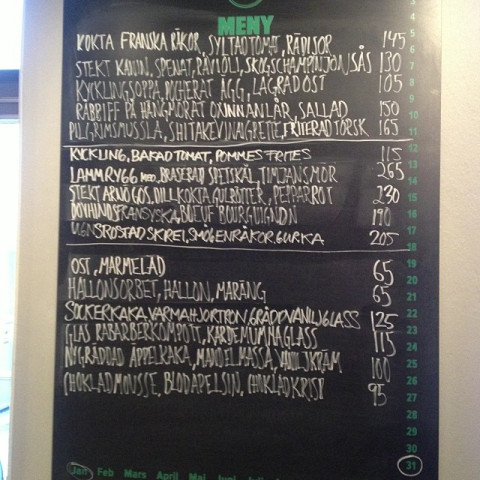 MENY
KOKTA FRANSKA RÄKOR, SYLTAD TOMAT, RÄDISOR 145
STEKT KANIN, SPENAT, RAVIOLI, SKOGSCHAMPINJONSÅS 130
KYCKLINGSOPPA, POCHERAT ÄGG, LAGRAD OST 105
RÅBIFF PÅ HÄNGMÖRAT OXINNANLÅR, SALLAD 150
PILGRIMSMUSSLA, SHITAKEVINAIGRETTE, FRITERAD TORSK 165
KYCKLING, BAKAD TOMAT, POMMES FRITES 115
LAMMRYGG MED BRASERAD SPETSKÅL, TIMJANSMÖR 265
STEKT ARNÖ GÖS, DILLKOKTA GULRÖTTER, PEPPARROT 230
DOVHINDFRANSYSKA, BOEUF BOURGUIGNON 190
UGNSROSTAD SKREI, SMÖGENRÄKOR, GURKA 205
OST, MARMELAD 65
HALLONSORBET, HALLON, MARÄNG 65
SOCKERKAKA, VARMA HJORTRON, GRÄDDVANILJGLASS 125
GLAS RABARBERKOMPOTT, KARDEMUMMAGLASS 115
NYGRÄDDAD ÄPPELKAKA, MANDELMASSA, VANILJKRÄM 100
CHOKLADMOUSSE, BLODAPELSIN, CHOKLADKRISP 95
3
4
5
6
7
8
9
10
11
12
13
14
15
16
17
18
19
20
21
22
23
24
25
26
27
28
29
30
31
Jan Feb Mars April Maj Juni